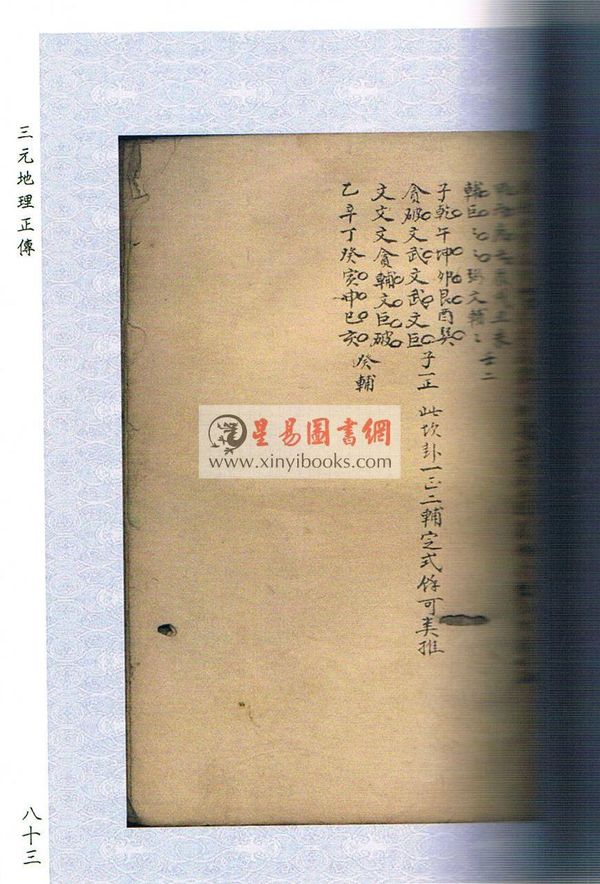 輔巨
子乾午坤卯艮酉巽
貪破文武文武文巨
子一正 此坎卦一正二輔定式餘可类推
文文文貪輔文巨破
乙辛丁癸亥申巳亥
癸輔
星易圖書網
www.xinyibooks.com
三元地理正傳
八十三